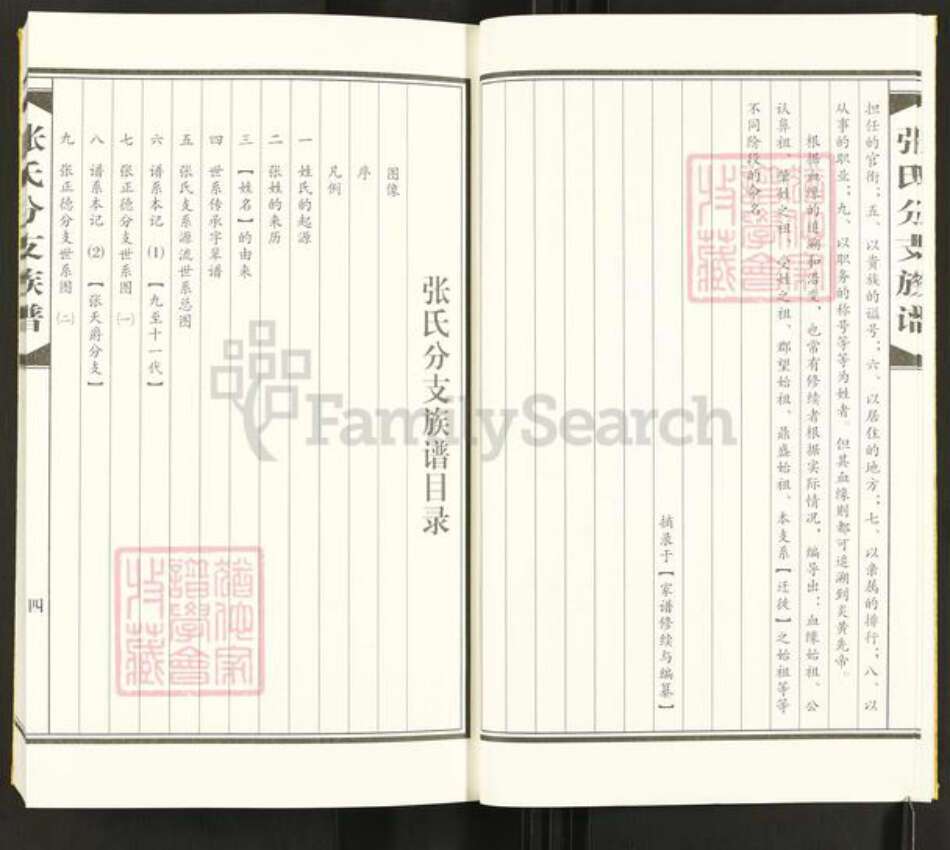 张氏分支族谱
担任的官衔；五、以贵族的谥号；六、以居住的地方；七、以亲属的排行；八、以
从事的职业；九、以职务的称号等等为姓者。但其血缘则都可追溯到炎黄先帝。
根据血缘的追溯和沿变，也常有修续者根据实际情况，编导出：血缘始祖、公
认鼻祖、肇姓之祖、受姓之祖、郡望始祖、鼎盛始祖、本支系【迁徙】之始祖等等
不同阶段的命名。
摘录于【家谱修续与编纂】
张氏分支族谱目录
图像
序
凡例
一 姓氏的起源
二 张姓的来历
三 【姓名】的由来
四 世系传承字辈谱
五 张氏支系源流世系总图
六 谱系本记 ⑴ 【九至十一代】
七 张正德分支世系图 ㈠
八 谱系本记 ⑵ 【张天爵分支】
九 张正德分支世系图 ㈡
张氏分支族谱
四
谱学会
收藏
谱学会
收藏
FamilySearch